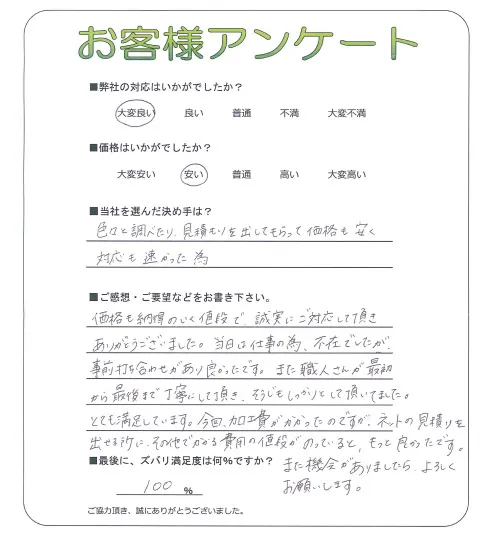 お客様アンケート
■弊社の対応はいかがでしたか？
大変良い 良い 普通 不満 大変不満
■価格はいかがでしたか？
大変安い 安い 普通 高い 大変高い
■当社を選んだ決め手は？
色々と調べたり、見積もりを出してもらって価格も安く
対応も速かった為
■ご感想・ご要望などをお書き下さい。
価格も納得のいく値段で、誠実にご対応して頂き
ありがとうございました。当日は仕事の為、不在でしたが、
事前打ち合わせがあり良かったです。また職人さんが最初
から最後まで丁寧にして頂き、そうじもしっかりとして頂いてました。
とても満足しています。今回、加工費がかかったのですが、ネットの見積りを
出せる所に、その他でかかる費用の値段がのっていると、もっと良かったです。
■最後に、ズバリ満足度は何％ですか？
また機会がありましたら、よろしく
お願いします。
100 %
ご協力頂き、誠にありがとうございました。